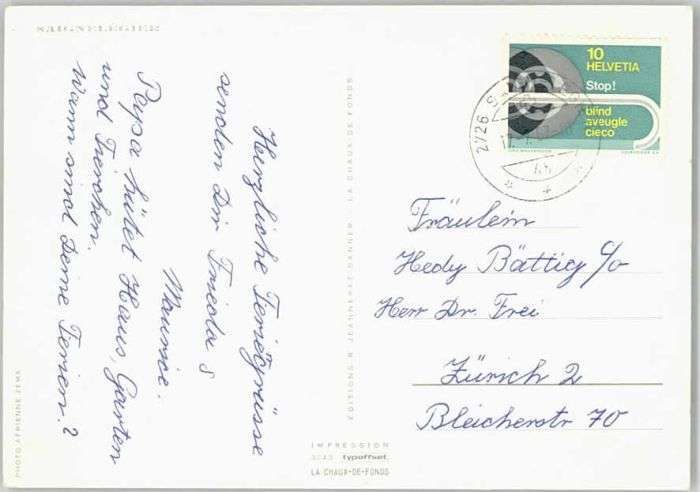 SAIGNELÉGIER
Herzliche Feriengrüsse
senden Dir Frieda &
Maurice.
Pepa hütet Haus, Garten
und Tierchen.
Wann sind Deine Ferien?
PHOTO AÉRIENNE ZEMA
EDITIONS R. JEANNERET-DANNER - LA CHAUX-DE-FONDS
IMPRESSION
typoffset
LA CHAUX-DE-FONDS
10
HELVETIA
Stop!
blind
aveugle
cieco
2726
Fräulein
Hedy Bättig c/o
Herr Dr. Frei
Zürich 2
Bleicherstr 70